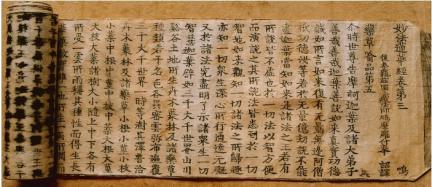 妙法蓮華經卷第三
後秦龜茲國三藏法師鳩摩羅什奉 詔譯
藥草喻品第五
尒時世尊告摩訶迦葉及諸大弟子
善哉善哉迦葉善說如來真實功德
誠如所言如來復有無量無邊阿僧
祇功德汝等若於無量億劫說不能
盡迦葉當知如來是諸法之王若有
所說皆不虛也於一切法以智方便
而演說之其所說法皆悉到於一切
智地如來觀知一切諸法之所歸趣
亦知一切衆生深心所行通達無礙
又於諸法究盡明了示諸衆生一切
智慧迦葉譬如三千大千世界山川
谿谷土地所生卉木叢林及諸藥草
種類若干名色各異密雲彌布遍覆
三千大千世界一時等澍其澤普洽
卉木叢林及諸藥草小根小莖小枝
小葉中根中莖中枝中葉大根大莖
大枝大葉諸樹大小隨上中下各有
所受一雲所雨稱其種性而得生長